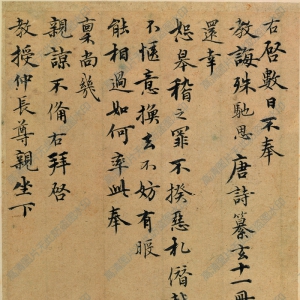 右啓數日不奉
教誨殊馳思唐詩纂玄十一冊
還幸
恕㬥稽之罪不揆惡札僭
不愜意換去不妨有暇
能相過如何率此奉
稟尚幾
親諒不備右拜啓
教授仲長尊親坐下